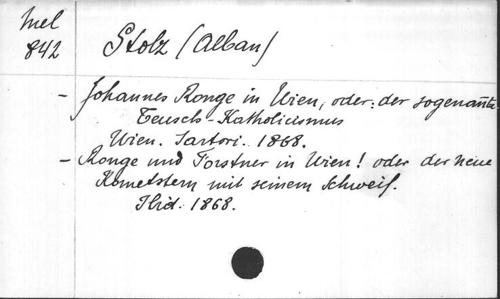 Mel
842
Stolz (Alban)
- Johannes Ronge in Wien, oder: der sogenannte
Teusch-Katholicismus
Wien. Sartori. 1868.
- Ronge und Forstner in Wien! oder der neue
Kometstern mit seinem Schweif.
Ibid. 1868.